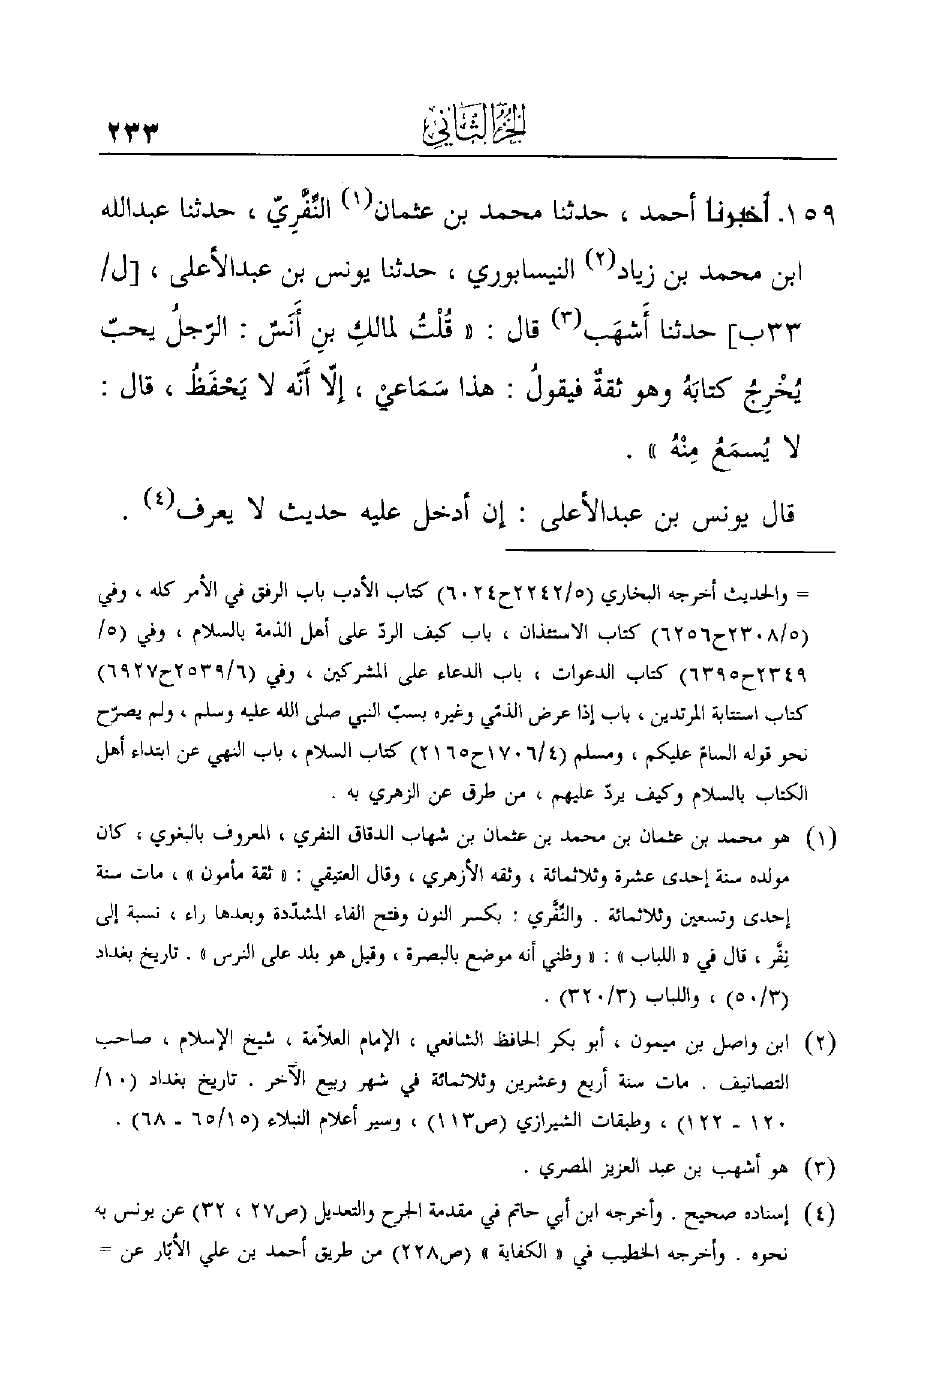 الجزء الثاني
٢٣٣
١٥٩. أخبرنا أحمد ، حدثنا محمد بن عثمان(١) النِّفَّرِيّ ، حدثنا عبدالله
ابن محمد بن زياد(٢) النيسابوري ، حدثنا يونس بن عبدالأعلى ، [ل/
٣٣ب] حدثنا أَشهَب(٣) قال : « قُلْتُ لمالكِ بنِ أَنَسٍ : الرّجلُ يحبّ
يُخْرِجُ كتابَهُ وهو ثقةٌ فيقولُ : هذا سَمَاعيْ ، إلّا أَنّه لا يَحْفَظُ ، قال :
لا يُسمَعُ مِنْهُ » .
قال يونس بن عبدالأعلى : إن أدخل عليه حديث لا يعرف(٤) .
= والحديث أخرجه البخاري (٥/٢٢٤٢ح٦٠٢٤) كتاب الأدب باب الرفق في الأمر كله ، وفي
(٥/٢٣٠٨ح٦٢٥٦) كتاب الاستئذان ، باب كيف الردّ على أهل الذمة بالسلام ، وفي (٥/
٢٣٤٩ح٦٣٩٥) كتاب الدعوات ، باب الدعاء على المشركين ، وفي (٦/٢٥٣٩ح٦٩٢٧)
كتاب استتابة المرتدين ، باب إذا عرض الذمّي وغيره بسبّ النبي صلى الله عليه وسلم ، ولم يصرّح
نحو قوله السامّ عليكم ، ومسلم (٤/١٧٠٦ح٢١٦٥) كتاب السلام ، باب النهي عن ابتداء أهل
الكتاب بالسلام وكيف يردّ عليهم ، من طرق عن الزهري به .
(١) هو محمد بن عثمان بن محمد بن عثمان بن شهاب الدقاق النفري ، المعروف بالبغوي ، كان
مولده سنة إحدى عشرة وثلاثمائة ، وثقه الأزهري ، وقال العتيقي : « ثقة مأمون » ، مات سنة
إحدى وتسعين وثلاثمائة . والنِّفَّري : بكسر النون وفتح الفاء المشدّدة وبعدها راء ، نسبة إلى
نِفَّر ، قال في « اللباب » : « وظني أنه موضع بالبصرة ، وقيل هو بلد على النرس » . تاريخ بغداد
(٣/٥٠) ، واللباب (٣/٣٢٠) .
(٢) ابن واصل بن ميمون ، أبو بكر الحافظ الشافعي ، الإمام العلاّمة ، شيخ الإسلام ، صاحب
التصانيف . مات سنة أربع وعشرين وثلاثمائة في شهر ربيع الآخر . تاريخ بغداد (١٠/
١٢٠ - ١٢٢) ، وطبقات الشيرازي (ص١١٣) ، وسير أعلام النبلاء (١٥/٦٥ - ٦٨) .
(٣) هو أشهب بن عبد العزيز المصري .
(٤) إسناده صحيح . وأخرجه ابن أبي حاتم في مقدمة الجرح والتعديل (ص٢٧ ، ٣٢) عن يونس به
نحوه . وأخرجه الخطيب في « الكفاية » (ص٢٢٨) من طريق أحمد بن علي الأبّار عن =